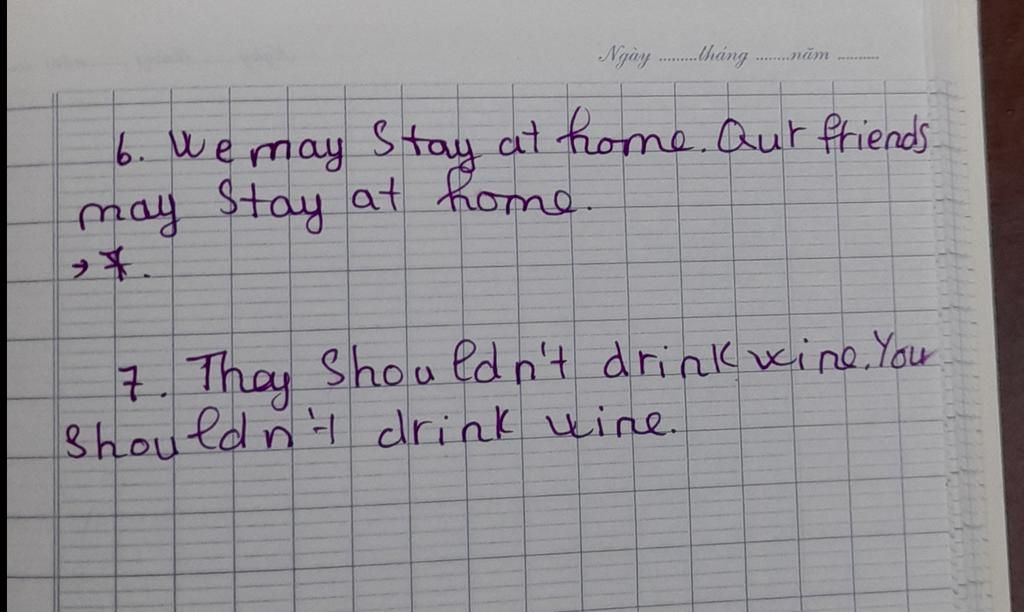 Ngày .........tháng ........năm ..........
6. We may Stay at home. Our friends
may Stay at home.
→ *.
7. They Shouldn't drink wine. You
Shouldn't drink wine.